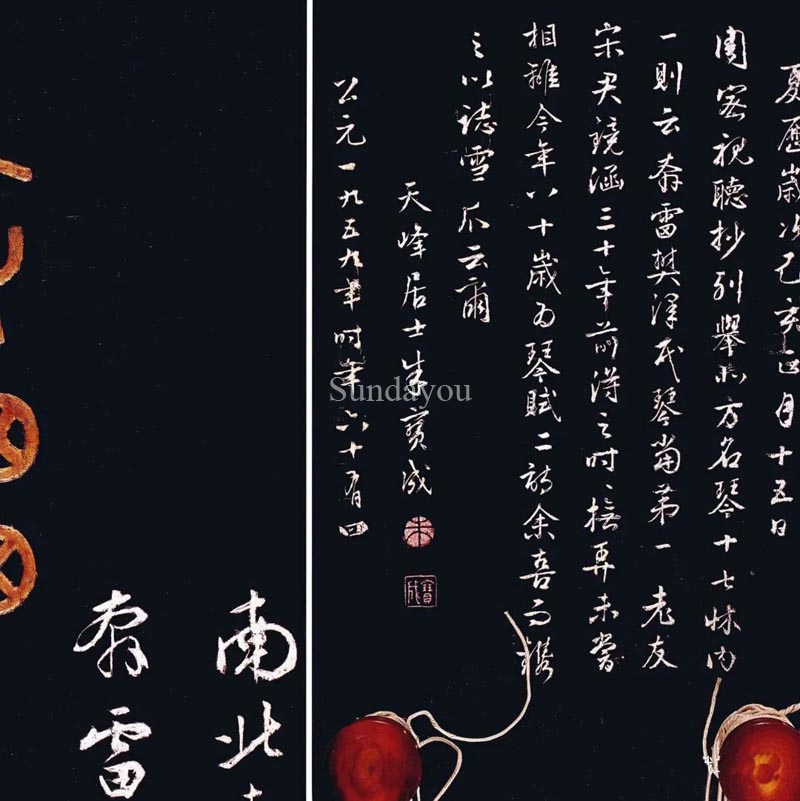 夏歷歲次己亥正月十五日
周密視聽抄列舉北方名琴十七牀內
一則云奔雷樊澤民琴當第一老友
宋君鏡涵三十年前得之時〻撫弄未嘗
相離今年八十歲為琴賦二詩余喜而鐫
之以誌雪爪云爾
天峰居士朱寶成
朱
寶成
公元一九五九年時年六十有四
南北
奔雷
Sundayou